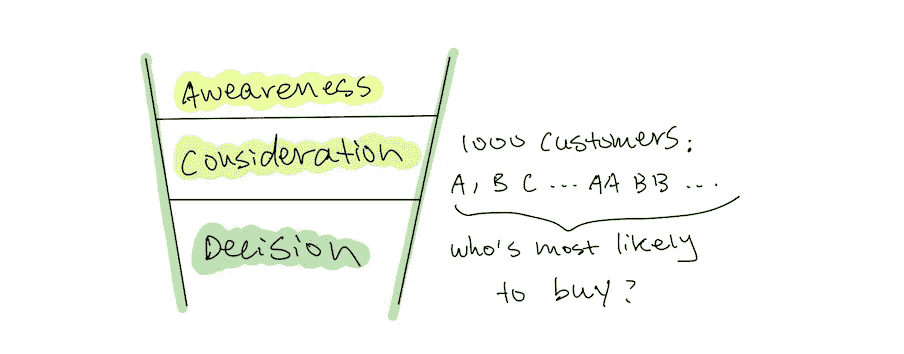 Aweareness
Consideration
Decision
1000 customers:
A, B C ... AA BB ...
who's most likely
to buy?